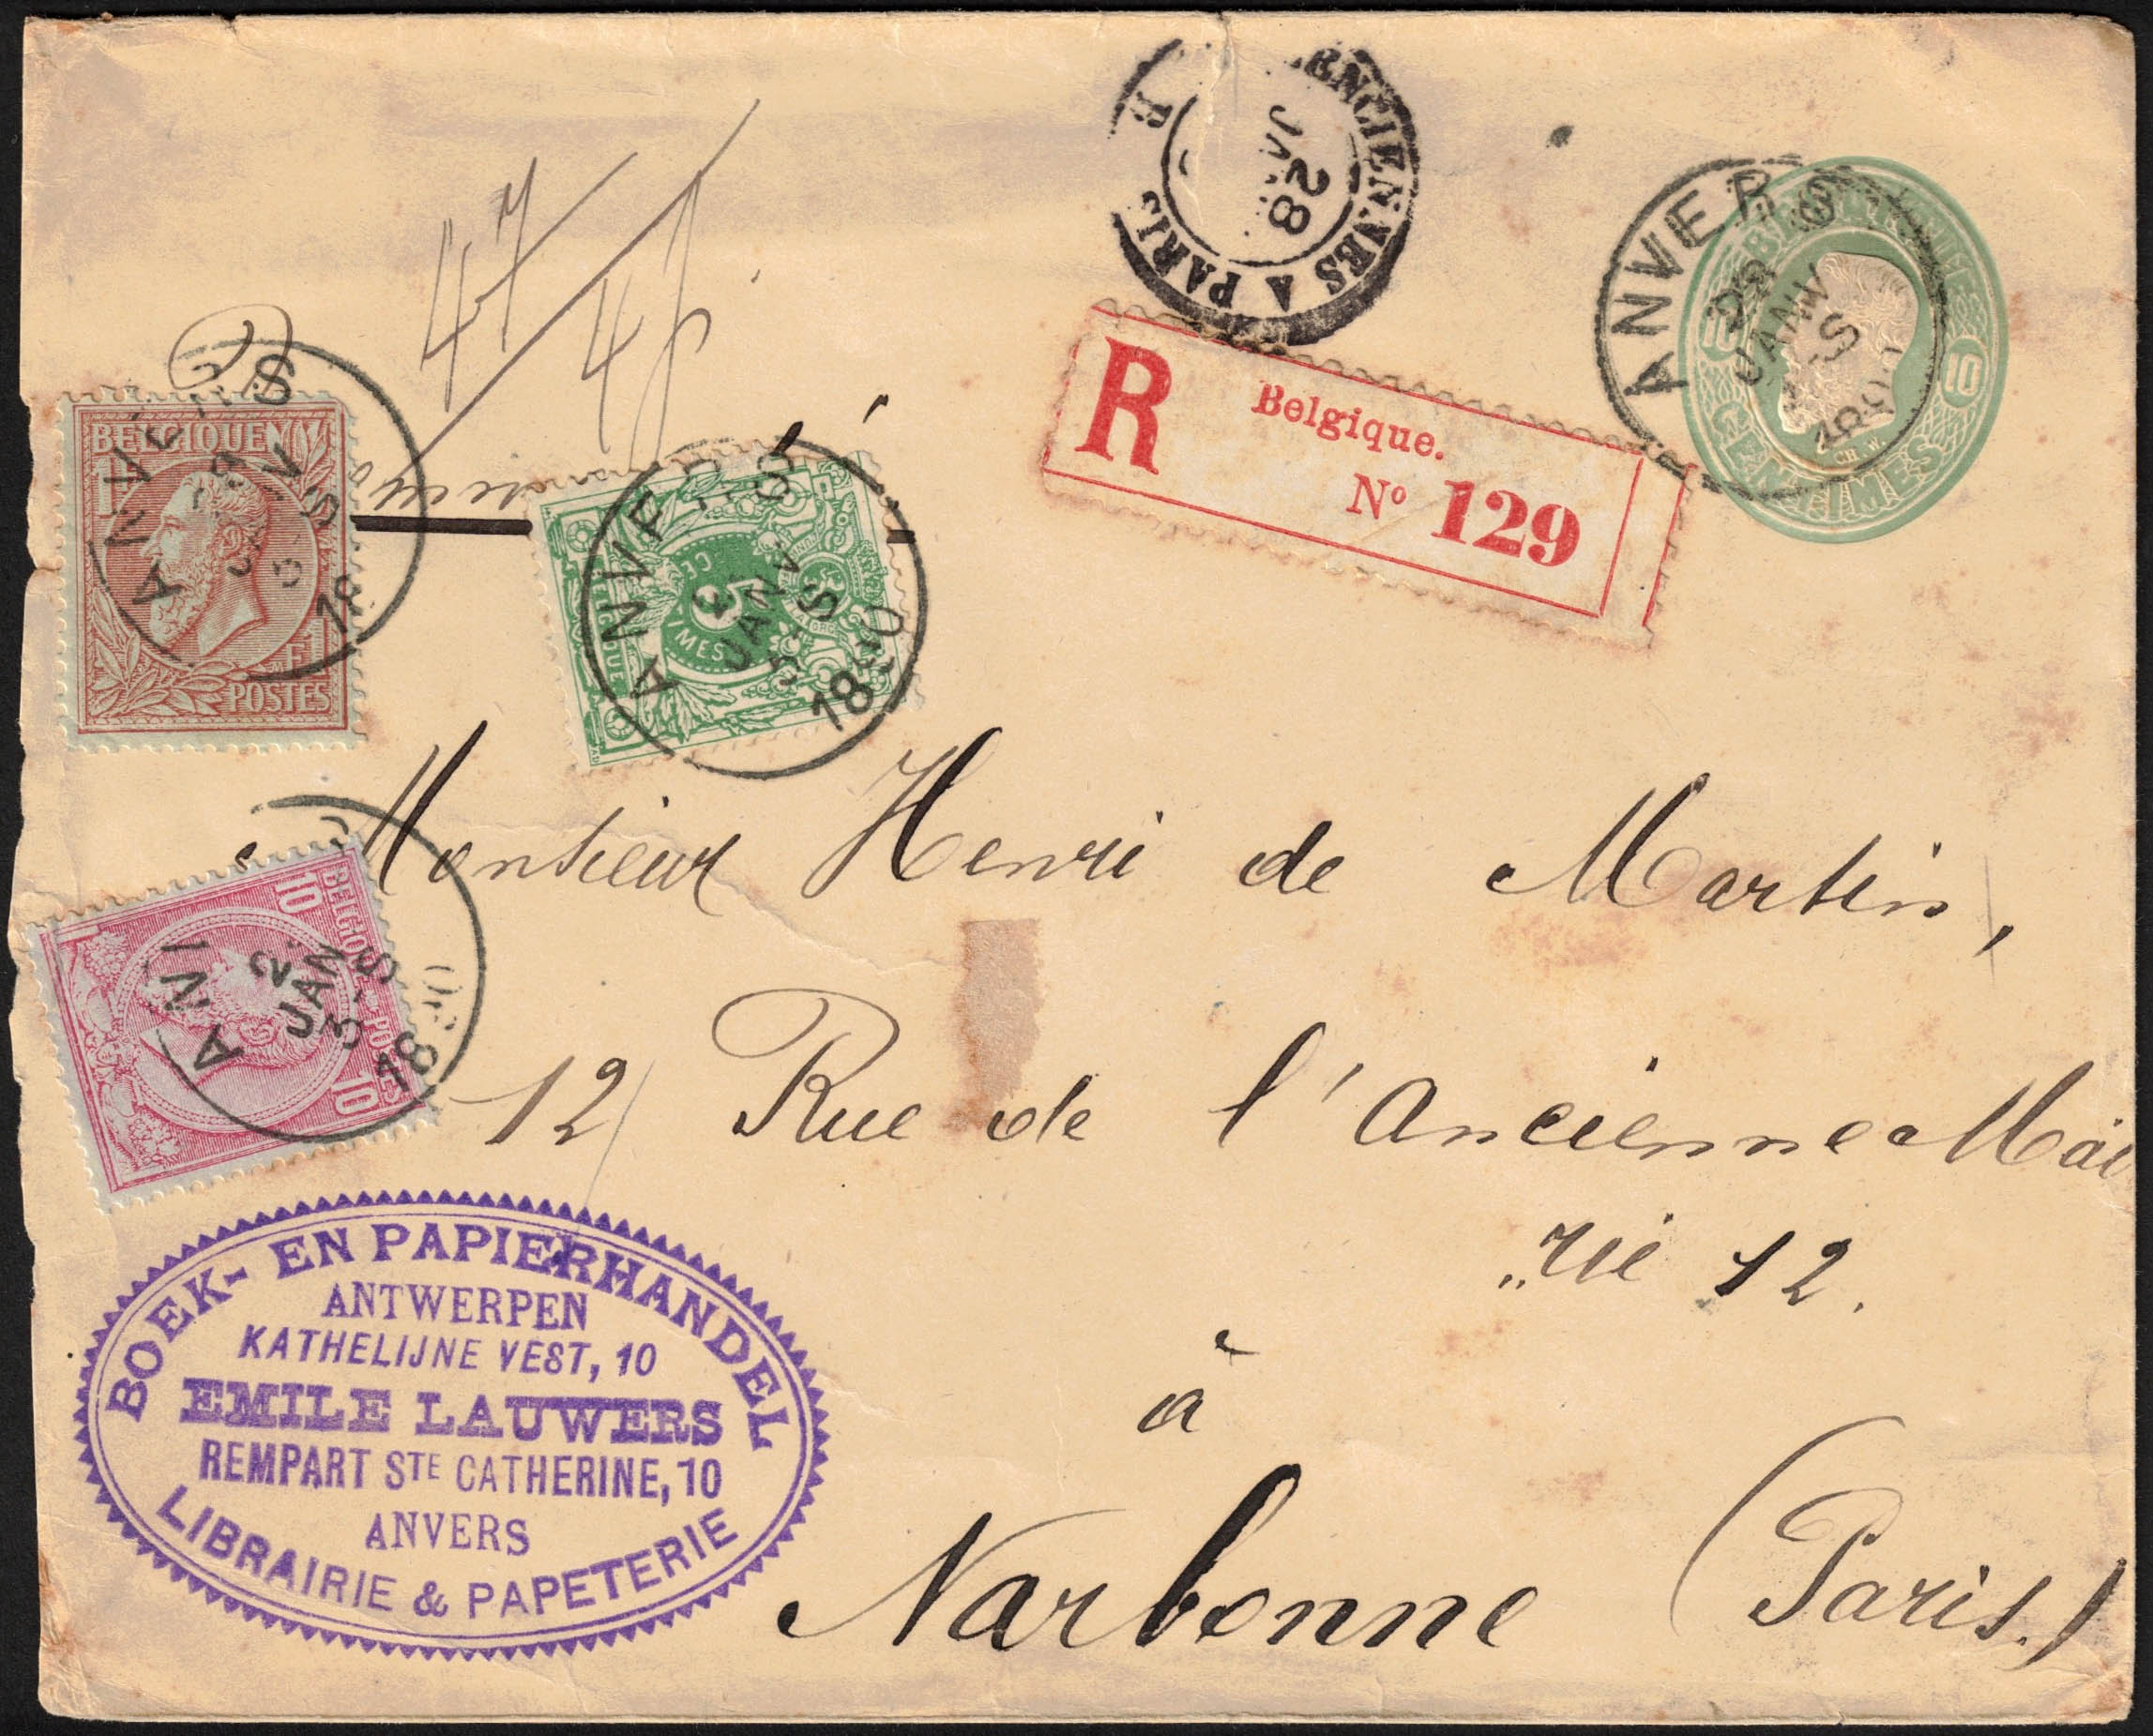 ENCIENNES A PARIS
28
JA
47
48
R
Belgique.
Nº 129
ANVERS
28
JANV
S
DIX CENTIMES
10
CH. W.
ANVERS
S
18
BELGIQUE
1
POSTES
ANVERS
JANV
S
1890
5
ANV
2
JAN
3-S
1890
BELGIQUE POSTES
10
10
Monsieur Henri de Martin,
12 Rue de l'Ancienne Mai
„rie 12.
à
Narbonne (Paris.)
BOEK- EN PAPIERHANDEL
ANTWERPEN
KATHELIJNE VEST, 10
EMILE LAUWERS
REMPART STE CATHERINE, 10
ANVERS
LIBRAIRIE & PAPETERIE